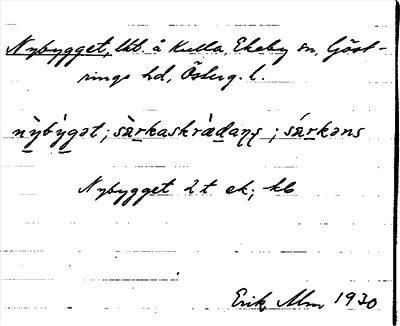 Nybygget, lht. å Kulla, Ekeby sn, Göst-
rings hd, Österg. l.
nỳby̆gət; sàrkaskrædaṇṣ; sárkəns
Nybygget 2 t ek; hb
Erik Alm 1930